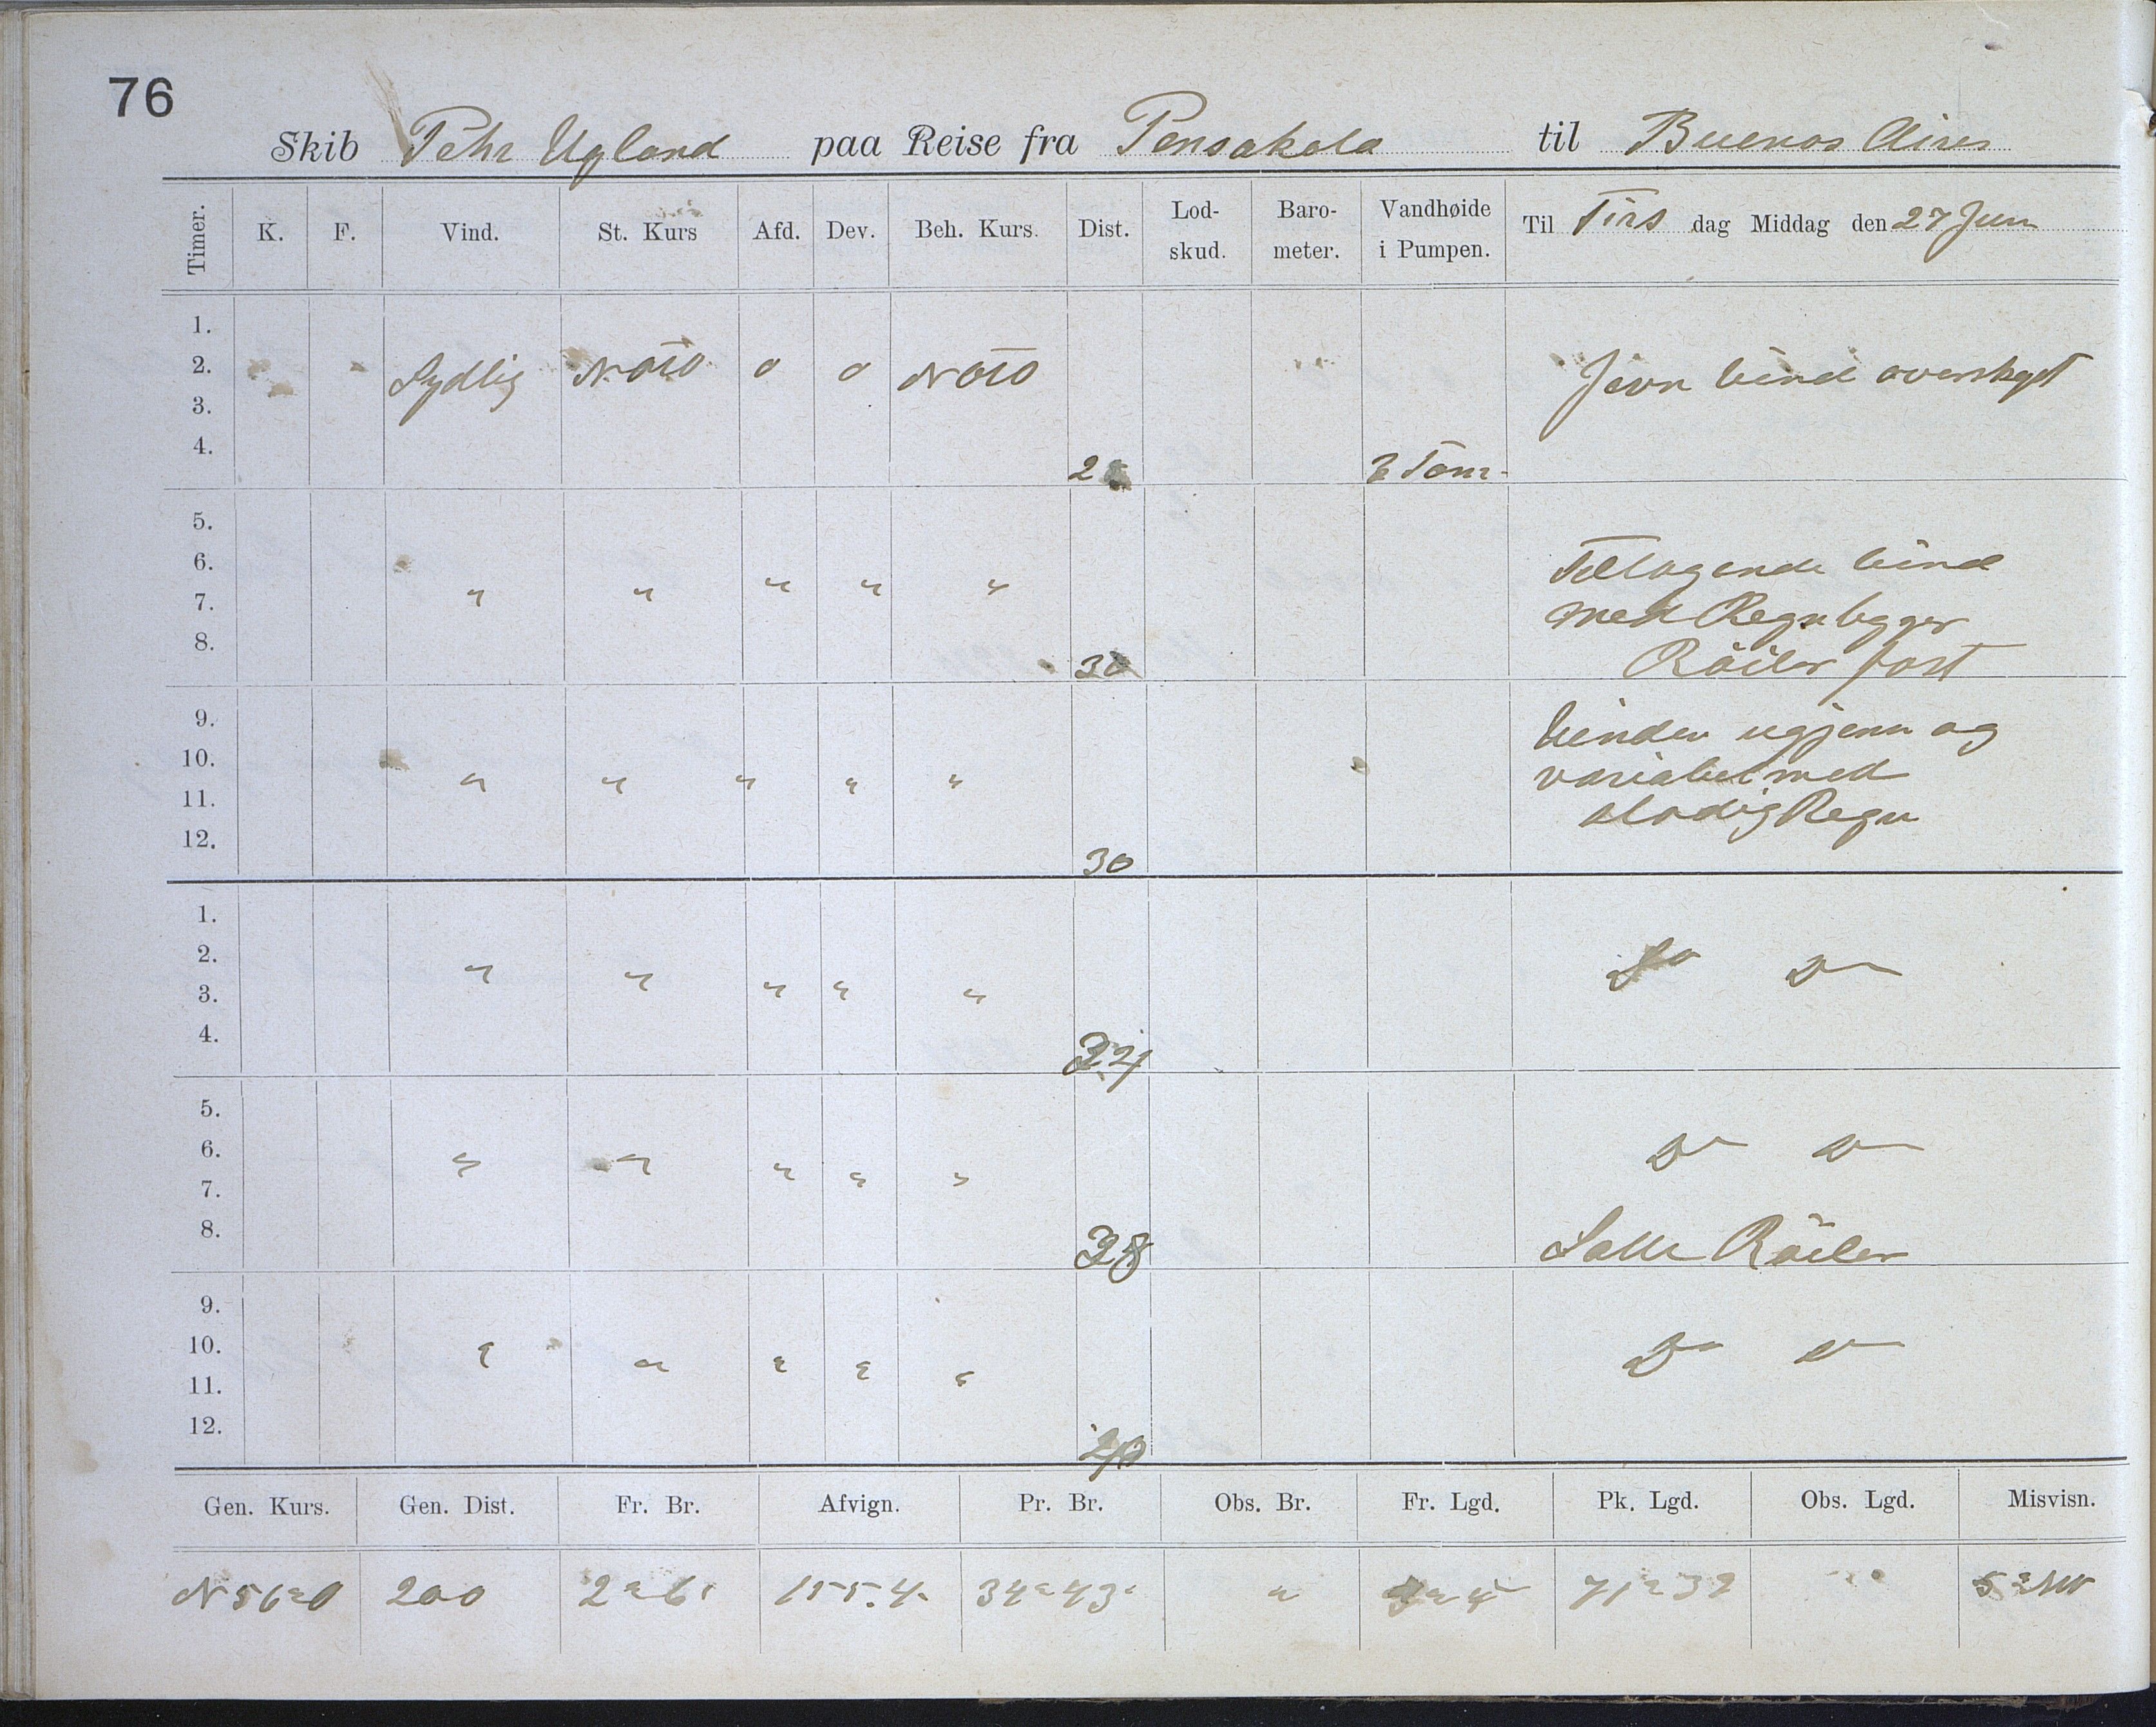 76
Skib Pehr Ugland paa Reise fra Pensakola til Buenos Aires
Timer. K. F. Vind. St. Kurs Afd. Dev. Beh. Kurs. Dist. Lod-skud. Baro-meter. Vandhøide i Pumpen. Til Tirs dag Middag den 27 Juni
1.
2. Sydlig NOtO 0 0 NOtO Jevn Vind overskyet
3.
4. 2 Tom
5.
6. Tiltagende Vind
7. " " " " " med Regnbyger
8. 30 Röiler fast
9. Vinden ugjevn og
10. " " " " " variabel med
11. stadig Regn
12. 30
1.
2. " " " " " Do Do
3.
4. 34
5.
6. " " " " " Do Do
7.
8. 38 Satte Röiler
9.
10. " " " " " Do Do
11.
12. 40
Gen. Kurs. Gen. Dist. Fr. Br. Afvign. Pr. Br. Obs. Br. Fr. Lgd. Pk. Lgd. Obs. Lgd. Misvisn.
N56°O 200 2°6' 155.4. 34°43' " 3°4' 71°32